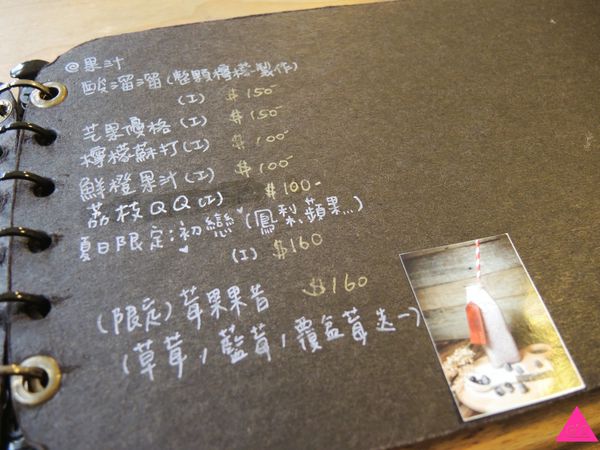 @果汁
酸溜溜(整顆檸檬製作)
(I) $150-
芒果優格(I) $150-
檸檬蘇打(I) $100-
鮮橙果汁(I) $100-
荔枝QQ(I) $100-
夏日限定:初戀(鳳梨,蘋果...)
(I) $160
(限定)莓果果昔 $160
(草莓,藍莓,覆盆莓選一)